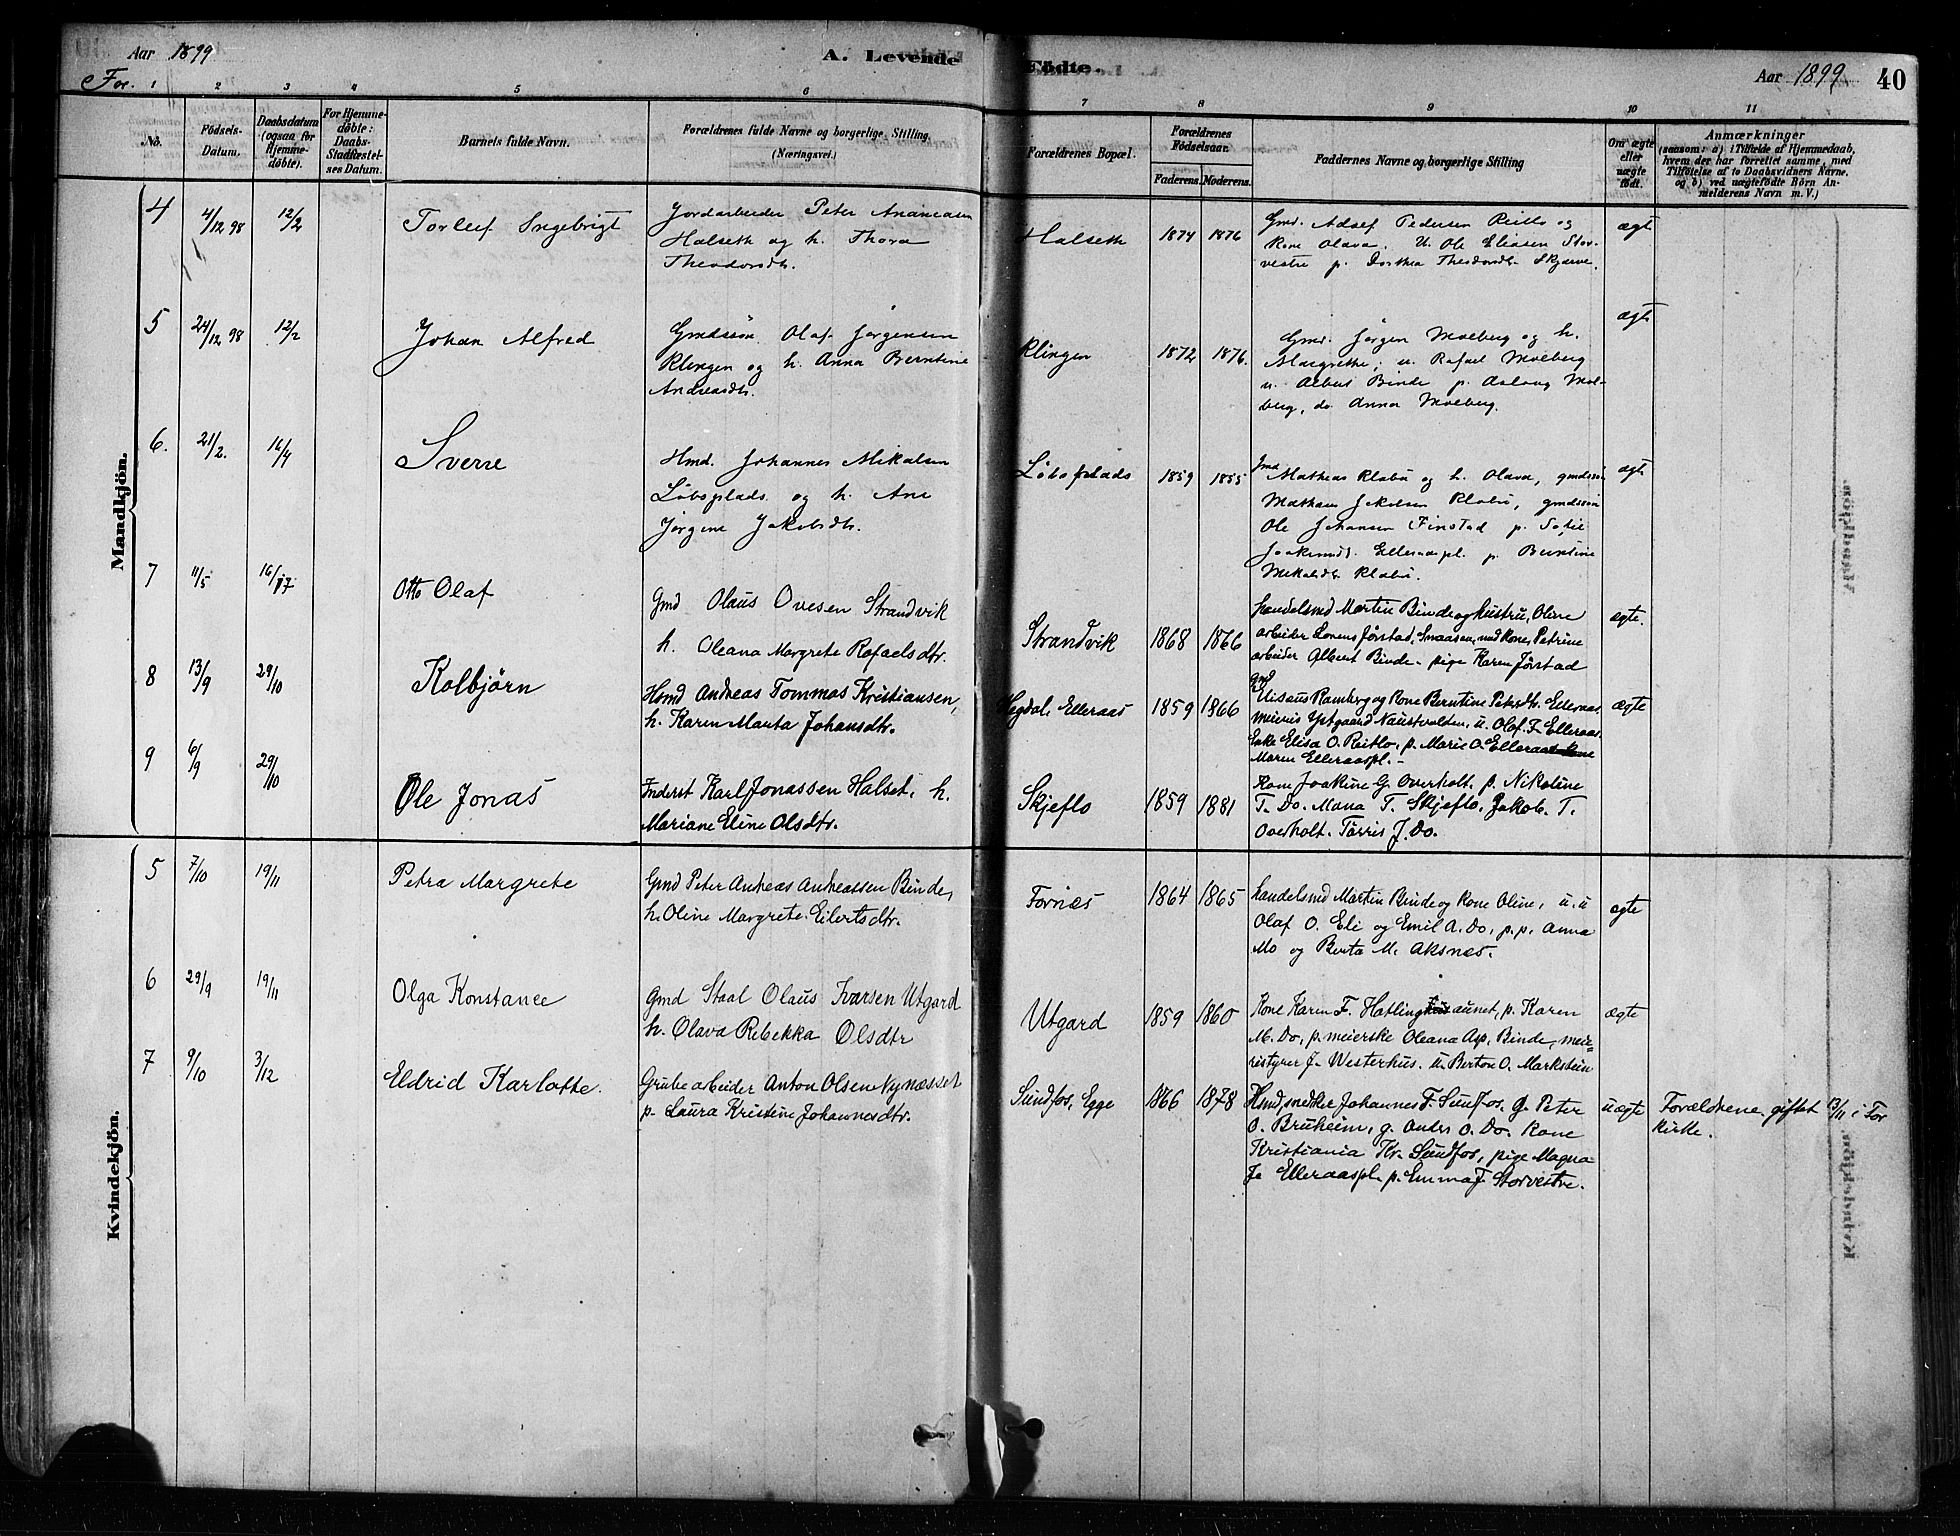 Aar 1899
A. Levende Födte.
Aar 1899
40
For.
1 2 3 4 5 6 7 8 9 10 11
No.
Födsels-
Datum.
Daabsdatum
(ogsaa for
Hjemme-
döbte).
For Hjemme-
döbte:
Daabs-
Stadfæstel-
ses Datum.
Barnets fulde Navn.
Forældrenes fulde Navne og borgerlige Stilling.
(Næringsvei.)
Forældrenes Bopæl.
Forældrenes
Födselsaar.
Faderens. Moderens.
Faddernes Navne og borgerlige Stilling
Om ægte
eller
uægte
født.
Anmærkninger
(saasom: a) i Tilfælde af Hjemmedaab,
hvem der har forrettet samme, med
Tilföielse af to Daabsvidners Navne.
og b) ved uægtefödte Börn An-
melderens Navn m. V.)
Mandkjön.
4 4/12 98 12/2 Torleif Ingebrigt
Jordarbeider Peter Ananiasen
Halseth og h. Thora
Theodorsdtr.
Halseth 1874 1876
Gmd. Adolf Pedersen Reitlo og
Kone Olava. U. Ole Eliasen Stor-
vestre p. Dorthea Theodorsdtr. Skjerve.
ægte
5 24/12 98 12/2 Johan Alfred
Gmdssön Olaf Jørgensen
Klingen og h. Anna Berntine
Andreasdtr.
Klingen 1872 1876.
Gmd. Jørgen Moeberg og h.
Margrethe, u. Rafael Moeberg
u. Albert Binde p. Aslaug Moe-
berg, do Anna Moeberg.
ægte
6. 21/2. 16/4 Sverre
Hmd. Johannes Mikalsen
Løbsplads og h. Ane
Jørgine Jakobsdtr.
Løbsplads 1859 1855
Gmd
Mathias Klabu og h. Olava, gmdssön
Mathias Jakobsen Klabu, gmdssön
Ole Johansen Finstad p. Sofie
Joakimsdt. Elleraaspl. p Berntine
Mikalsdtr Klabu.
ægte
7 11/5 16/7 Otto Olaf
Gmd Olaus Ovesen Strandvik
h. Oleana Margrete Rafaelsdtr.
Strandvik 1868 1866
Handelsmd Martin Binde og hustru, Oline
arbeider Lorens Jørstad, Snaasen, med kone, Petrine
arbeider Albert Binde - pige Karen Jørstad
ægte.
8 13/9 29/10 Kolbjörn
Hsmd Andreas Tommas Kristiansen,
h. Karen Marta Johansdtr.
Hegdal, Elleraas 1859 1866
gmd
Elisæus Ramberg og Kone Berntine Petersdtr. Elleraas.
meieris Ystgaard Naustvolden, u. Olaf F. Elleraas.
Enke Elisa O. Reitlo, p. Marie O. Elleraas
Maren Elleraaspl. -
ægte
9 6/9 29/10 Ole Jonas
Inderst Karl Jonassen Halset, h.
Mariane Eline Olsdtr.
Skjeflo 1859 1881
Kone Joakine G. Overholt. p. Nikoline
T. Do. Mana T. Skjeflo, Jakob. T.
Overholt. Tørris J. Do.
Kvindekjön.
5 7/10 19/11 Petra Margrete
Gmd Peter Andreas Andreassen Binde,
h. Oline Margrete Eilertsdtr.
Fornes 1864 1865
Handelsmd Martin Binde og Kone Oline, u. u
Olaf O. Eli og Emil A. Do, p.p. Anna
Mo og Berta M. Aksnes.
ægte
6 29/9 19/11 Olga Konstance
Gmd Staal Olaus Ivarsen Utgard
h. Olava Rebekka Olsdtr
Utgard 1859 1860
Kone Karen F. Hatlingaunet, p. Karen
M. Do, p. meierske Oleana Asp, Binde, meie-
ristyrer J. Westerhus. u. Berton O. Markstein
ægte
7 9/10 3/12 Eldrid Karlotte.
Grubearbeider Anton Olsen Nynæsset
p. Laura Kristine Johannesdtr.
Sundfos, Egge 1866 1878
Hsmd, snedker Johannes F. Sundfos. G. Peter
O. Bruheim, g. Anders O. Do. Kone
Kristiania Kr. Sundfos, pige Magna
J. Elleraaspl. p. Emma J. Storvestre.
uægte
Forældrene giftet 13/11 i For
kirke.